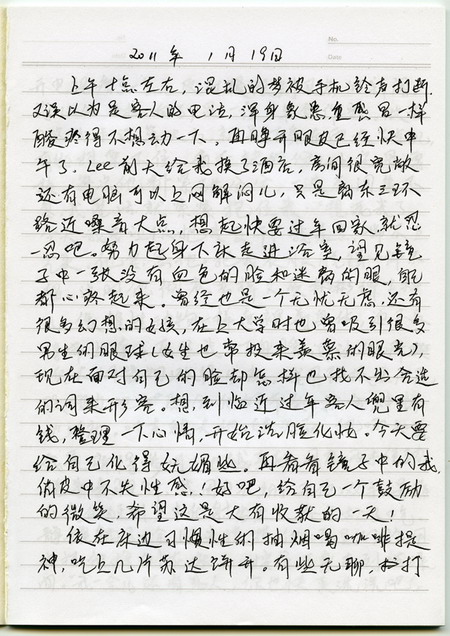 No.
Date
2011年 1月19日
上午十点左右，混乱的梦被手机铃声打断.
又误以为是客人的电话，浑身象患重感冒一样
酸疼得不想动一下，再睁开眼已经快中
午了. Lee前天给我换了酒店，房间很宽敞
还有电脑可以上网解闷儿，只是靠东三环
路近噪音大点，想起快要过年回家，就忍
一忍吧。努力起身下床走进浴室，望见镜
子中一张没有血色的脸和迷离的眼，自己
都心疼起来。曾经也是一个无忧无虑，还有
很多幻想的女孩，在上大学时也曾吸引很多
男生的眼球(女生也常投来羡慕的眼光)，
现在面对自己的脸却怎样也找不出合适
的词来形容。想到临近过年客人兜里有
钱，整理一下心情，开始洗脸化妆。今天要
给自己化得妩媚些。再看看镜子中的我，
俏皮中不失性感！好吧，给自己一个鼓励
的微笑，希望这是大有收获的一天！
依在床边习惯性的抽烟喝咖啡提
神，吃上几片苏达饼干。有些无聊，打